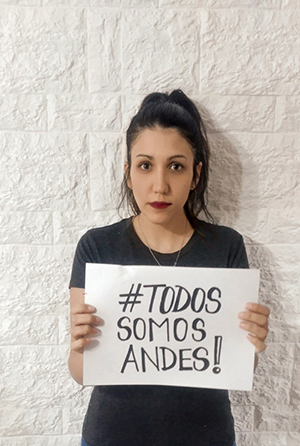 #TODOS
SOMOS
ANDES!